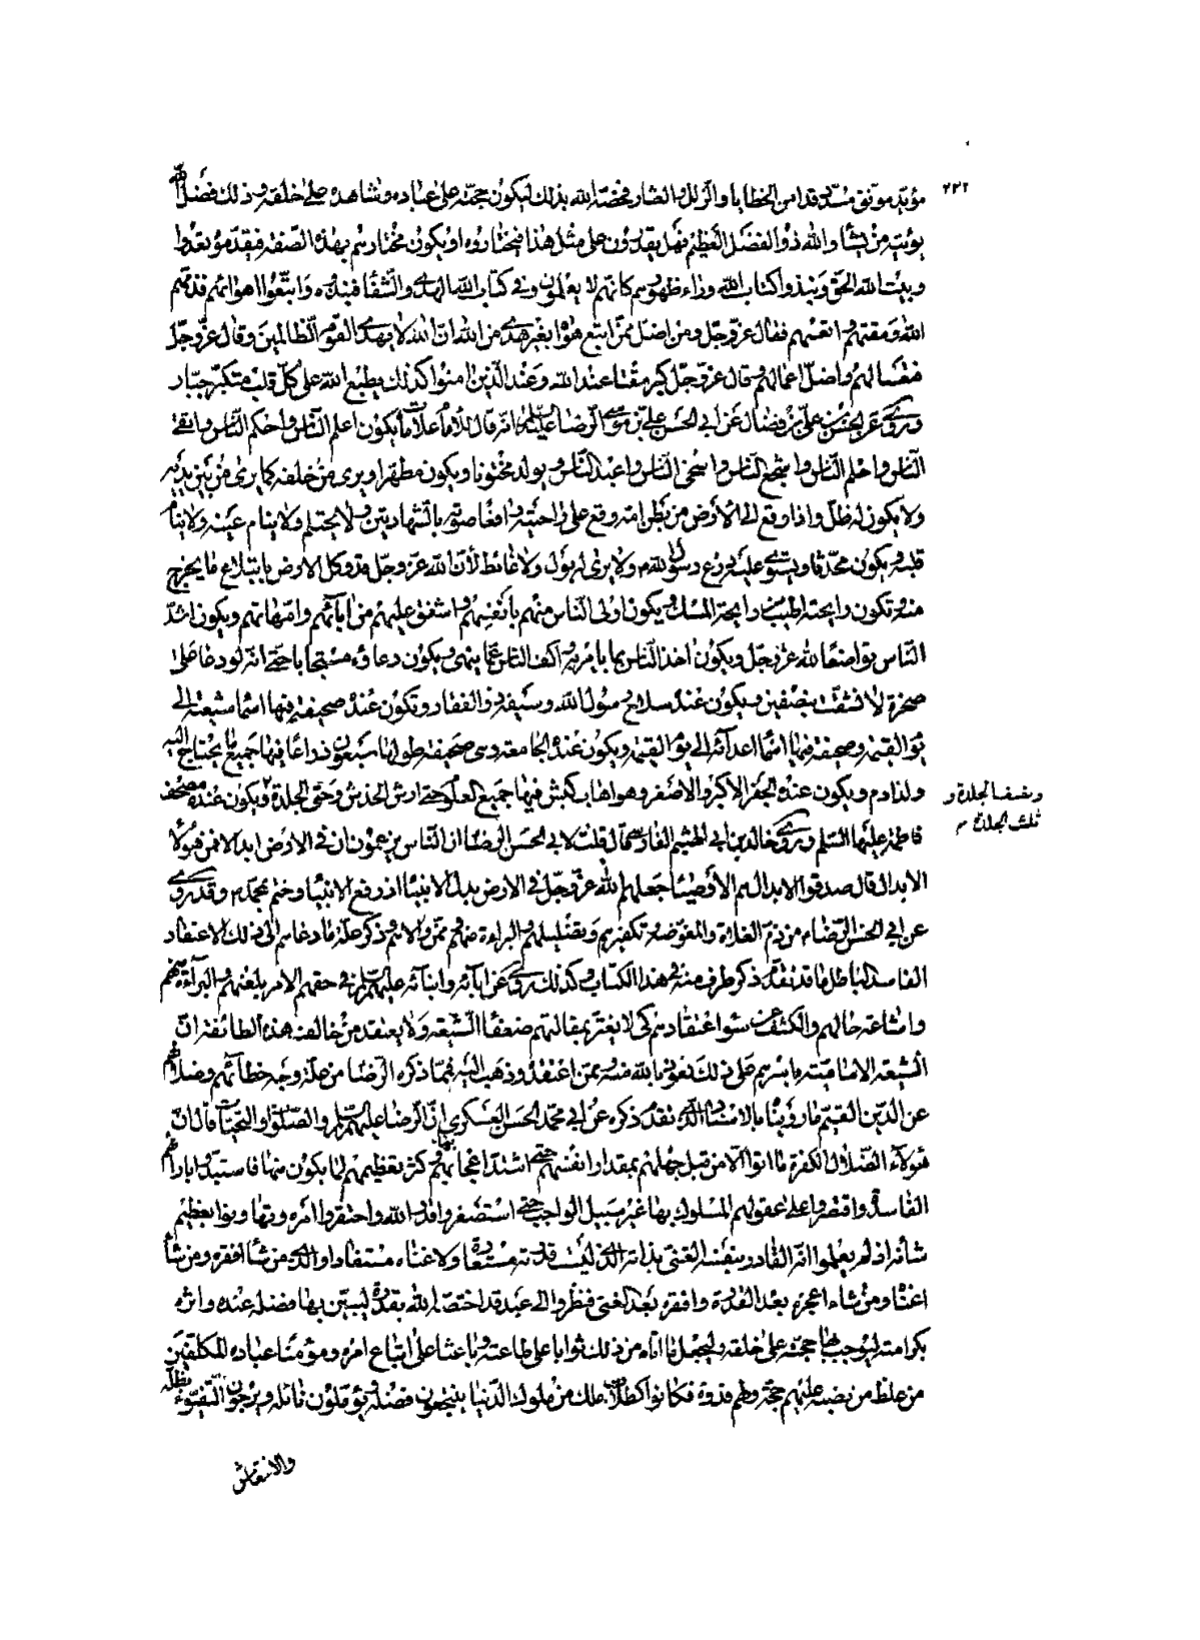 ٢٣٢
مؤيّد موفق مسدّد قد امن الخطايا والزلل والعثار فخصّه الله بذلك ليكون حجّته على عباده وشاهده على خلقه وذلك فضل الله
يؤتيه من يشاء والله ذو الفضل العظيم فهل يقدرون على مثل هذا فيختاروه او يكون مختارهم بهذه الصّفة فيقدّموه تعدّوا
وبيت الله الحقّ ونبذوا كتاب الله وراء ظهورهم كانهم لا يعلمون وفي كتاب الله الهدى والشّفاء فنبذوه واتّبعوا اهوائهم فذمّهم
الله ومقتهم واتعسهم فقال عزّ وجلّ ومن اضلّ ممّن اتبع هواه بغير هدى من الله انّ الله لا يهدى القوم الظّالمين وقال عزّ وجلّ
فتعسا لهم واضلّ اعمالهم وقال عزّ وجلّ كبر مقتا عند الله وعند الّذين امنوا كذلك يطبع الله على كلّ قلب متكبّر جبّار
وروى عن الحسن بن علىّ بن فضال عن ابي الحسن علي بن موسى الرّضا عليه السلم انه قال للامام علامات يكون اعلم النّاس واحكم النّاس واتقى
النّاس واحلم النّاس واشجع النّاس واسخى النّاس واعبد النّاس ويولد مختونا ويكون مطهرا ويرى من خلفه كما يرى من بين يديه
ولا يكون له ظلّ واذا وقع الى الارض من بطن امّه وقع على راحتيه رافعا صوته بالشّهادتين ولا يحتلم ولا ينام عينه ولا ينام
قلبه ويكون محدّثا ويستوى عليه درع رسول الله ص ولا يرى له بول ولا غائط لانّ الله عزّ وجلّ قد وكل الارض بابتلاع ما يخرج
منه وتكون رايحته اطيب من رايحة المسك ويكون اولى النّاس منهم بانفسهم واشفق عليهم من ابائهم وامّهاتهم ويكون اشدّ
النّاس تواضعا لله عزّ وجلّ ويكون اخذ النّاس بما يامر به واكف النّاس عمّا ينهى ويكون دعاؤه مستجابا حتّى انه لو دعا على
صخرة لانشقّت بنصفين ويكون عنده سلاح رسول الله وسيفه ذو الفقار وتكون عنده صحيفة فيها اسماء شيعته الى
يوم القيمة وصحيفة فيها اسماء اعدائه الى يوم القيمة ويكون عنده الجامعة وهى صحيفة طولها سبعون ذراعا فيها جميع ما يحتاج اليه
ولد ادم ويكون عنده الجفر الاكبر والاصغر وهو اهاب كبش فيها جميع العلوم حتى ارش الخدش وحتى الجلدة ويكون عنده مصحف
ونصف الجلدة و
ثلث الجلدة م
فاطمة عليها السّلم وروى خالد بن ابي الهيثم الفارسى قال قلت لابي الحسن الرضا ان النّاس يزعمون ان في الارض ابدالا فمن هؤلاء
الابدال قال صدقوا الابدال هم الاوصياء جعلهم الله عزّ وجلّ في الارض بدل الانبياء اذ رفع الانبياء وختم بمحمد ص وقد روى
عن ابي الحسن الرّضا ع من ذمّ الغلاة والمفوّضة وتكفيرهم وتضليلهم والبراءة منهم وممّن والاهم وذكر علّة ما دعاهم الى ذلك الاعتقاد
الفاسد الباطل ما قد تقدّم ذكر طرف منه في هذا الكتاب وكذلك روى عن ابآئه وابنآئه عليهم السلم في حقهم الامر بلعنهم والبرآءة منهم
واشاعة حالهم والكشف عن سوء اعتقادهم كى لا يغترّ بمقالتهم ضعفاء الشّيعة ولا يعتقد من خالف هذه الطائفة انّ
الشّيعة الاماميّة باسرهم على ذلك نعوذ بالله منه وممّن اعتقده وذهب اليه فممّا ذكره الرّضا من علّة وجه خطائهم وضلالهم
عن الدّين القيّم ما رويناه بالاسناد الّذي تقدم ذكره عن ابي محمّد الحسن العسكري انّ الرضا عليهم السلم والصّلوة والتحيات قال انّ
هؤلآء الضّلال الكفرة ما اتوا الا من قبل جهلهم بمقدار انفسهم حتّى اشتدّ اعجابهم بها وكثر تعظيمهم لما يكون منها فاستبدّوا بارائهم
الفاسدة واقتصروا على عقولهم المسلوك بها غير سبيل الواجب حتّى استصغروا قدر الله واحتقروا امره وتهاونوا بعظيم
شأنه اذ لم يعلموا انّه القادر بنفسه الغنىّ بذاته الّذي ليست قدرته مستعارة ولا غناه مستفادا والّذي من شاء افقره ومن شاء
اغناه ومن شاء اعجزه بعد القدرة وافقره بعد الغنى فنظروا الى عبد قد اختصّه الله بقدرة ليبيّن بها فضله عنده واثره
بكرامته ليوجب بها حجّته على خلقه وليجعل ما اتاه من ذلك ثوابا على طاعته وباعثا على اتباع امره ومؤمنا عباده المكلّفين
من غلط من نصبه عليهم حجّة ولهم قدوة فكانوا كطلاب ملك من ملوك الدّنيا ينتجعون فضله ويؤمّلون نائله ويرجون التّفيّؤ بظلّه
والانتعاش